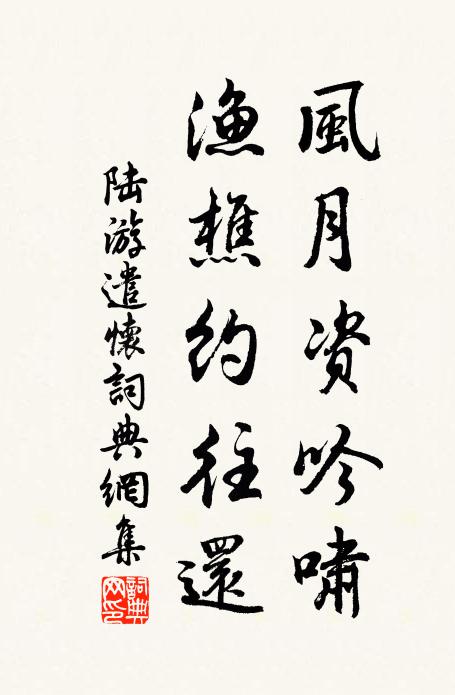 風月資吟嘯
漁樵約往還
陸游遣懷詞典網集
詞典網印